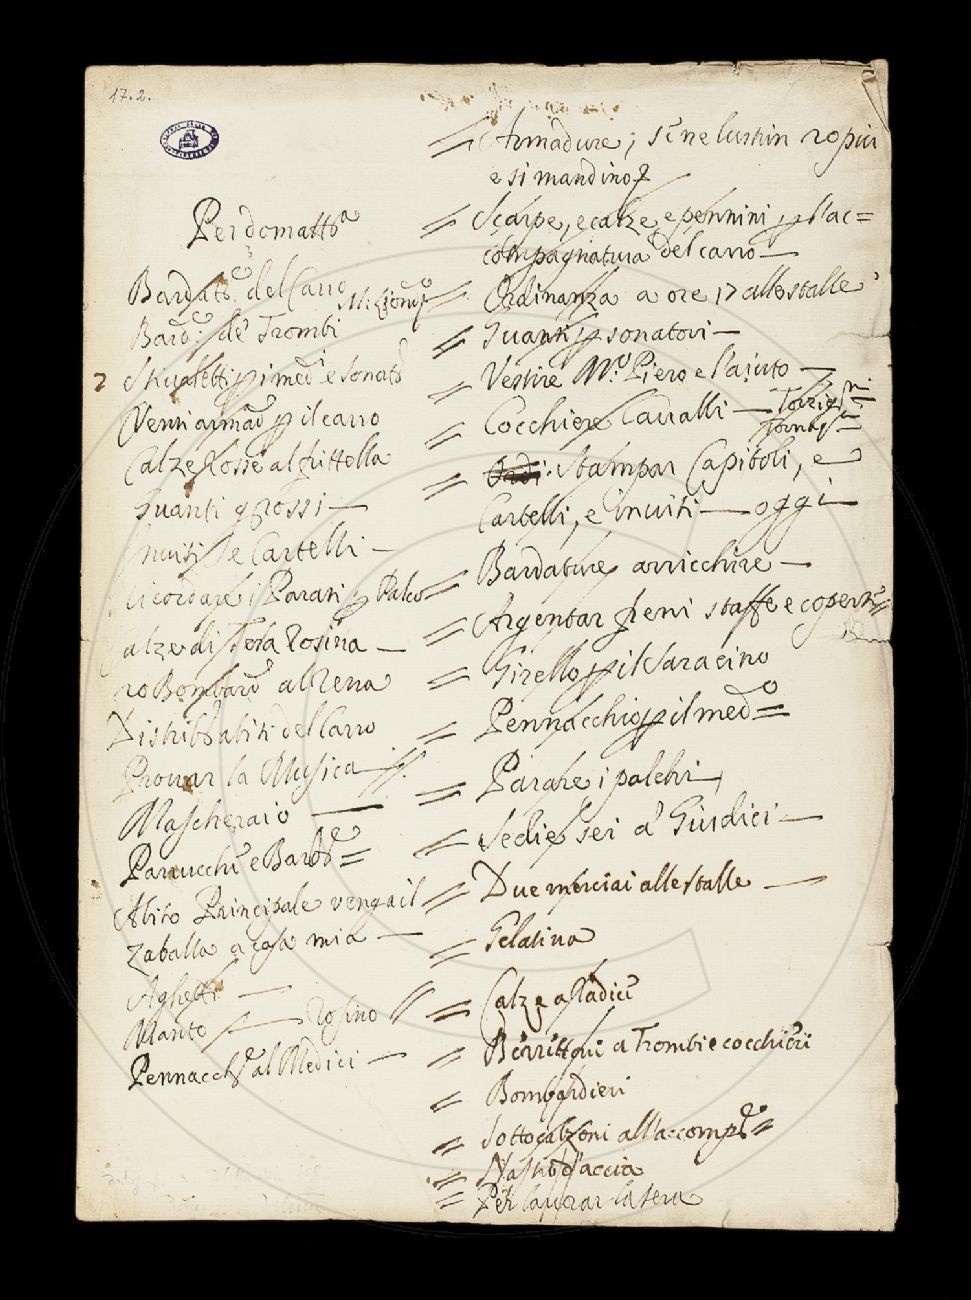 17.2.
Per domattª
Bardatᵉ del Carro
Bardᵉ: de Trombi
Venti armad p il carro
Calze rosse al frittella
Guanti grossi —
Inviti, e Cartelli —
Ricordare i Parati p Palco
Calze di Tela rosina —
20 Bombard al Rena
Distribᵉ abiti del Carro
Provar la Musica — //.
Mascheraio —
Parrucchᵉ e Barbᵉ =
Abito Principale venga il
Zaballa a casa mia —
Aghetti —
Manto — rosino //
Pennacchᵉ al Medici —
= Armadure; se ne lustrin 20 piu
e si mandino
= Scarpe, e calze, e pennini p l'ac=
compagnatura del carro —
= Ordinanza a ore 17 alle stalle
= Guanti p sonatori —
= Vestire Mº: Piero e l'aiuto —
= Cocchiere Cavalli —
= Stampar Capitoli, e
Cartelli, e Inviti — oggi —
= Bardature arricchire —
= Argentar freni staffe e
= Girello p il Saracino
= Pennacchio p il medº =
= Parghe i palchi —
= Sedie sei a' Giudici —
= Due merciai alle stalle —
= Gelatina
= Calze a
= Berrettoni a Trombi e cocchieri
= Bombardieri
= Sottocalzoni all'accompᵉ =
= Nastro d'accia
= Per lavorar la sera